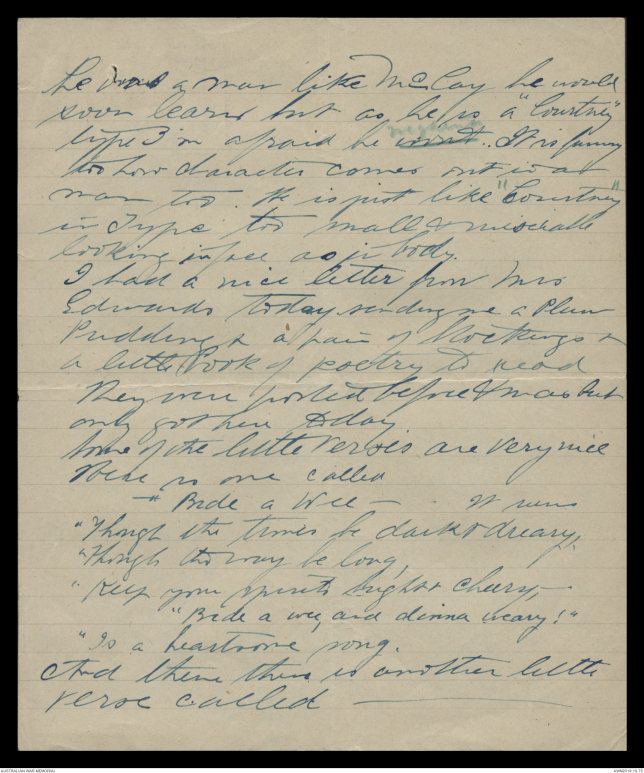 he was a man like McCay he would
soon learn but as he is a "Courtney"
type I'm afraid he wont. It is funny
too how character comes out in a
man too. He is just like "Courtney"
in Type too small & miserable
looking in face as in body.
I had a nice letter from Mrs
Edwards today sending me a Plum
Pudding & a pair of Stockings &
a little book of poetry to read
They were posted before Xmas but
only got here today
Some of the little verses are very nice
There is one called
—" Bide a Wee — It runs
"Though the times be dark & dreary,
"Though the way be long,
"Keep your spirits bright & cheery,—
"Bide a wee, and dinna weary!"
"Is a heartsome song.
And there is another little
verse called
AUSTRALIAN WAR MEMORIAL